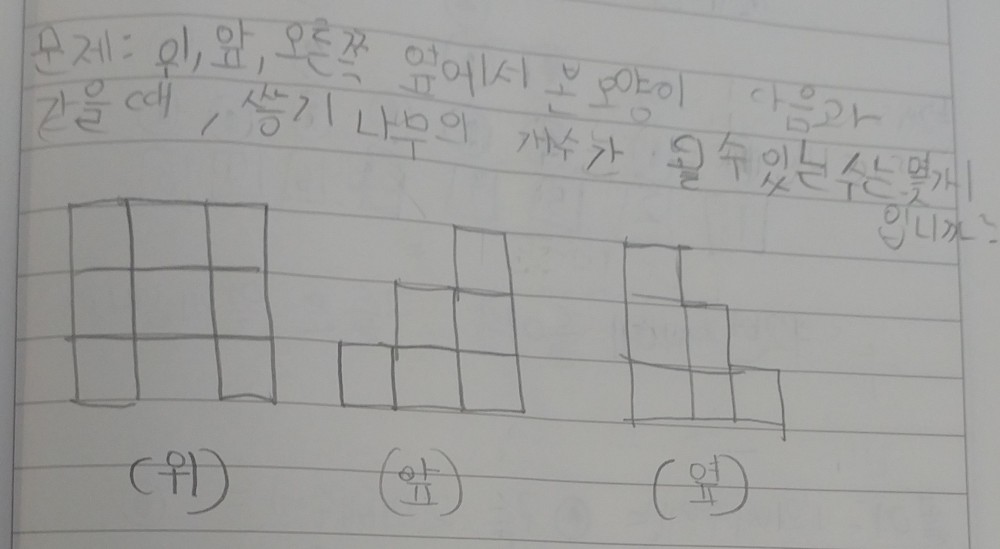 문제: 위, 앞, 오른쪽 옆에서 본 모양이 다음과
같을 때, 쌓기 나무의 개수가 될 수 있는 수는 몇가지
입니까?
(위) (앞) (옆)